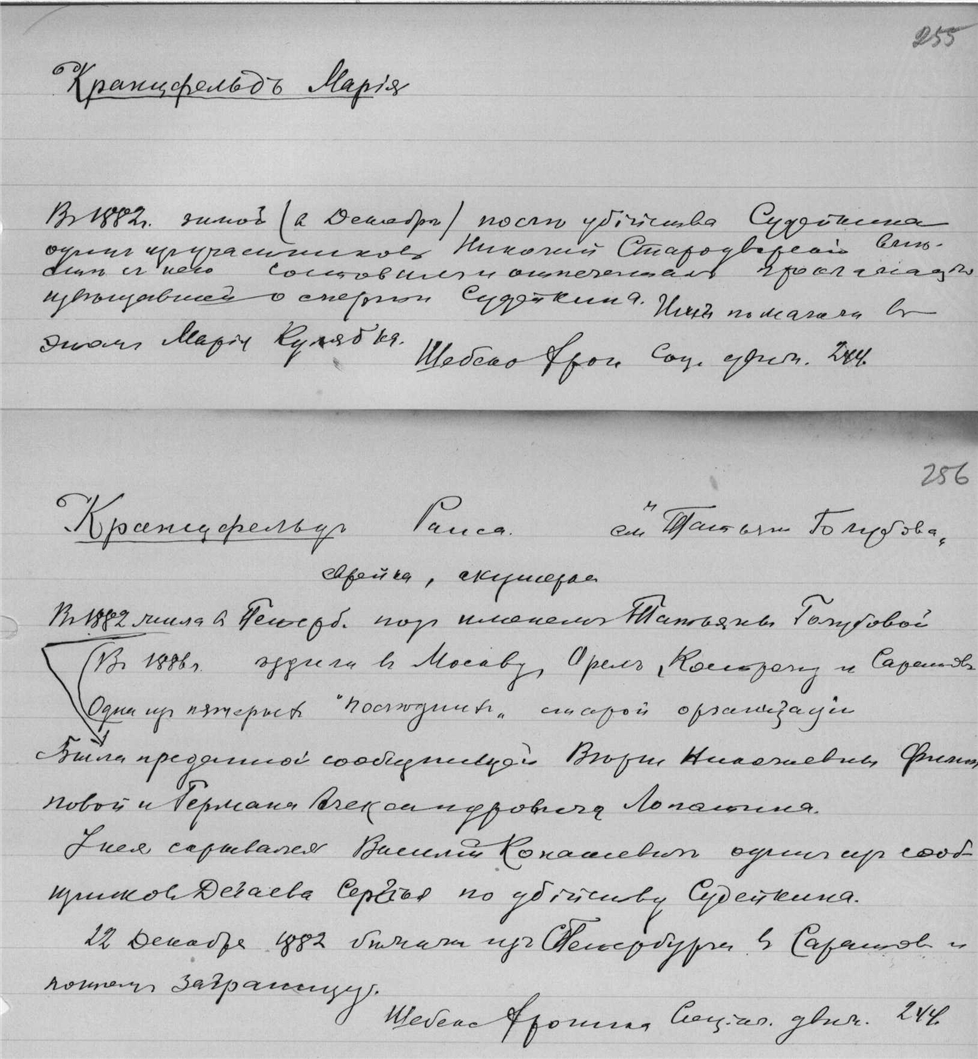 255
Кранцфельдъ Марія
В 1882 г. зимой (в Декабрѣ) послѣ убійства Судейкина
один из участников Николай Стародворскій
с нею составили и отпечатали прокламацію
извѣщавшій о смерти Судейкина. Имъ помагала в
этомъ Марія Кулябка.
Шебеко Хрон Соц. движ. 244.
256
Кранцфельдъ Раиса. см „Татьяна Голубова„
еврейка, акушерка
В 1882 жила в Петерб. под именем Татьяны Голубовой
(В 1886 г. ѣздила в Москву, Орел, Кострому и Саратов
Одна из пятерых "послѣдних„ старой организаціи
Была преданной сообщницей Вѣры Николаевны Филип
повой и Германа Александровича Лопатина.
У нея скрывался Василій Конашевич один из сооб-
щиков Дегаева Сергѣя по убійству Судейкина.
22 Декабря 1882 бѣжала из С Петербурга в Саратов и
потом заграницу.
Шебеко Хроника Соціал. движ. 244.